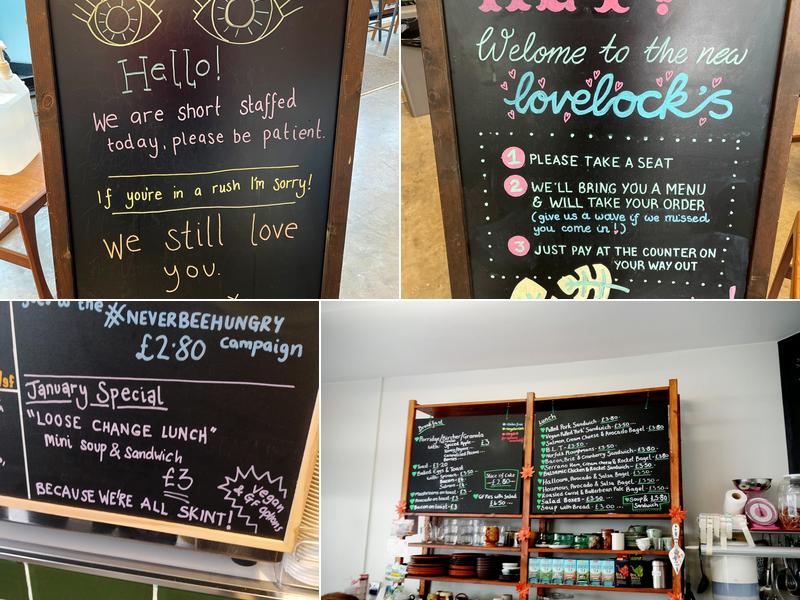 Hello!
We are short staffed
today, please be patient.
If you're in a rush I'm sorry!
we still love
you.
HEY!
Welome to the new
lovelock's
1 PLEASE TAKE A SEAT
2 WE'LL BRING YOU A MENU
& WILL TAKE YOUR ORDER
(give us a wave if we missed
you come in!)
3 JUST PAY AT THE COUNTER ON
YOUR WAY OUT
the #NEVERBEEHUNGRY
£2.80 campaign
January Special
"LOOSE CHANGE LUNCH"
Mini soup & Sandwich
£3
BECAUSE WE'RE ALL SKINT!
vegan
& GF
options
Breakfast
Porridge/Bircher/Granola
with: Spiced Apple
£3
Toast - £1.20
Baked Eggs & Toast
Mushrooms on toast - £3
Avocado on toast - £3
Bacon on toast - £3
Slice of Cake
- £2.80 -
GF Pies with Salad
£6.50
Lunch
Pulled Pork Sandwich - £3.80
Vegan Pulled 'Pork' Sandwich - £3.50
Salmon, Cream Cheese & Avocado Bagel - £3.80
B.L.T - £3.50
Norfolk Ploughmans - £3.50
Bacon, Brie & Cranberry Sandwich - £3.80
Serrano Ham, Cream Cheese & Rocket Bagel - £3.80
Balsamic Chicken & Rocket Sandwich - £3.50
Halloumi, Avocado & Salsa Bagel - £3.50
Houmous, Avocado & Salsa Bagel - £3.50
Roasted Carrot & Butterbean Pate Bagel - £3.50
Salad Boxes - £3.50
Soup with Bread - £3.00
Soup & £5.80
Sandwich